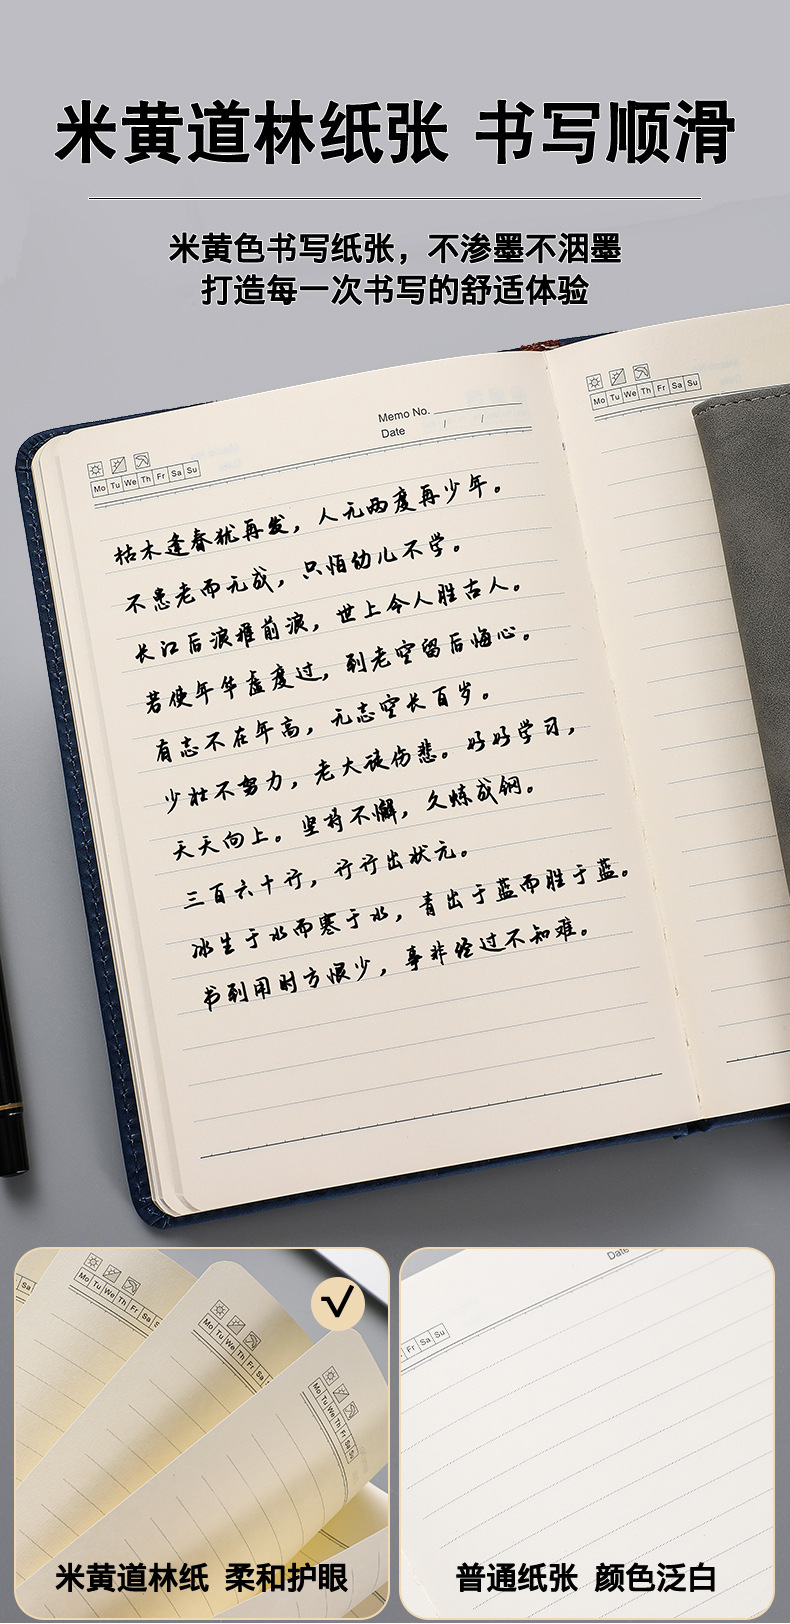 米黄道林纸张 书写顺滑
米黄色书写纸张，不渗墨不洇墨
打造每一次书写的舒适体验
Memo No.
Date / /
Mo Tu We Th Fr Sa Su
Mo Tu We Th Fr Sa Su
枯木逢春犹再发，人无两度再少年。
不患老而无成，只怕幼儿不学。
长江后浪推前浪，世上今人胜古人。
若使年华虚度过，到老空留后悔心。
有志不在年高，无志空长百岁。
少壮不努力，老大徒伤悲。好好学习，
天天向上。坚持不懈，久炼成钢。
三百六十行，行行出状元。
冰生于水而寒于水，青出于蓝而胜于蓝。
书到用时方恨少，事非经过不知难。
Sa
Mo Tu We Th Fr Sa S
Mo Tu We Th Fr Sa
Mo Tu We Th Fr Sa Su
米黄道林纸 柔和护眼
Date
Fr Sa Su
普通纸张 颜色泛白